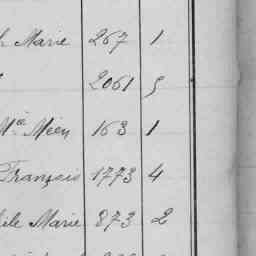 Marie 267 1
2061 5
Mª Méen 163 1
François 1773 4
Marie 873 2